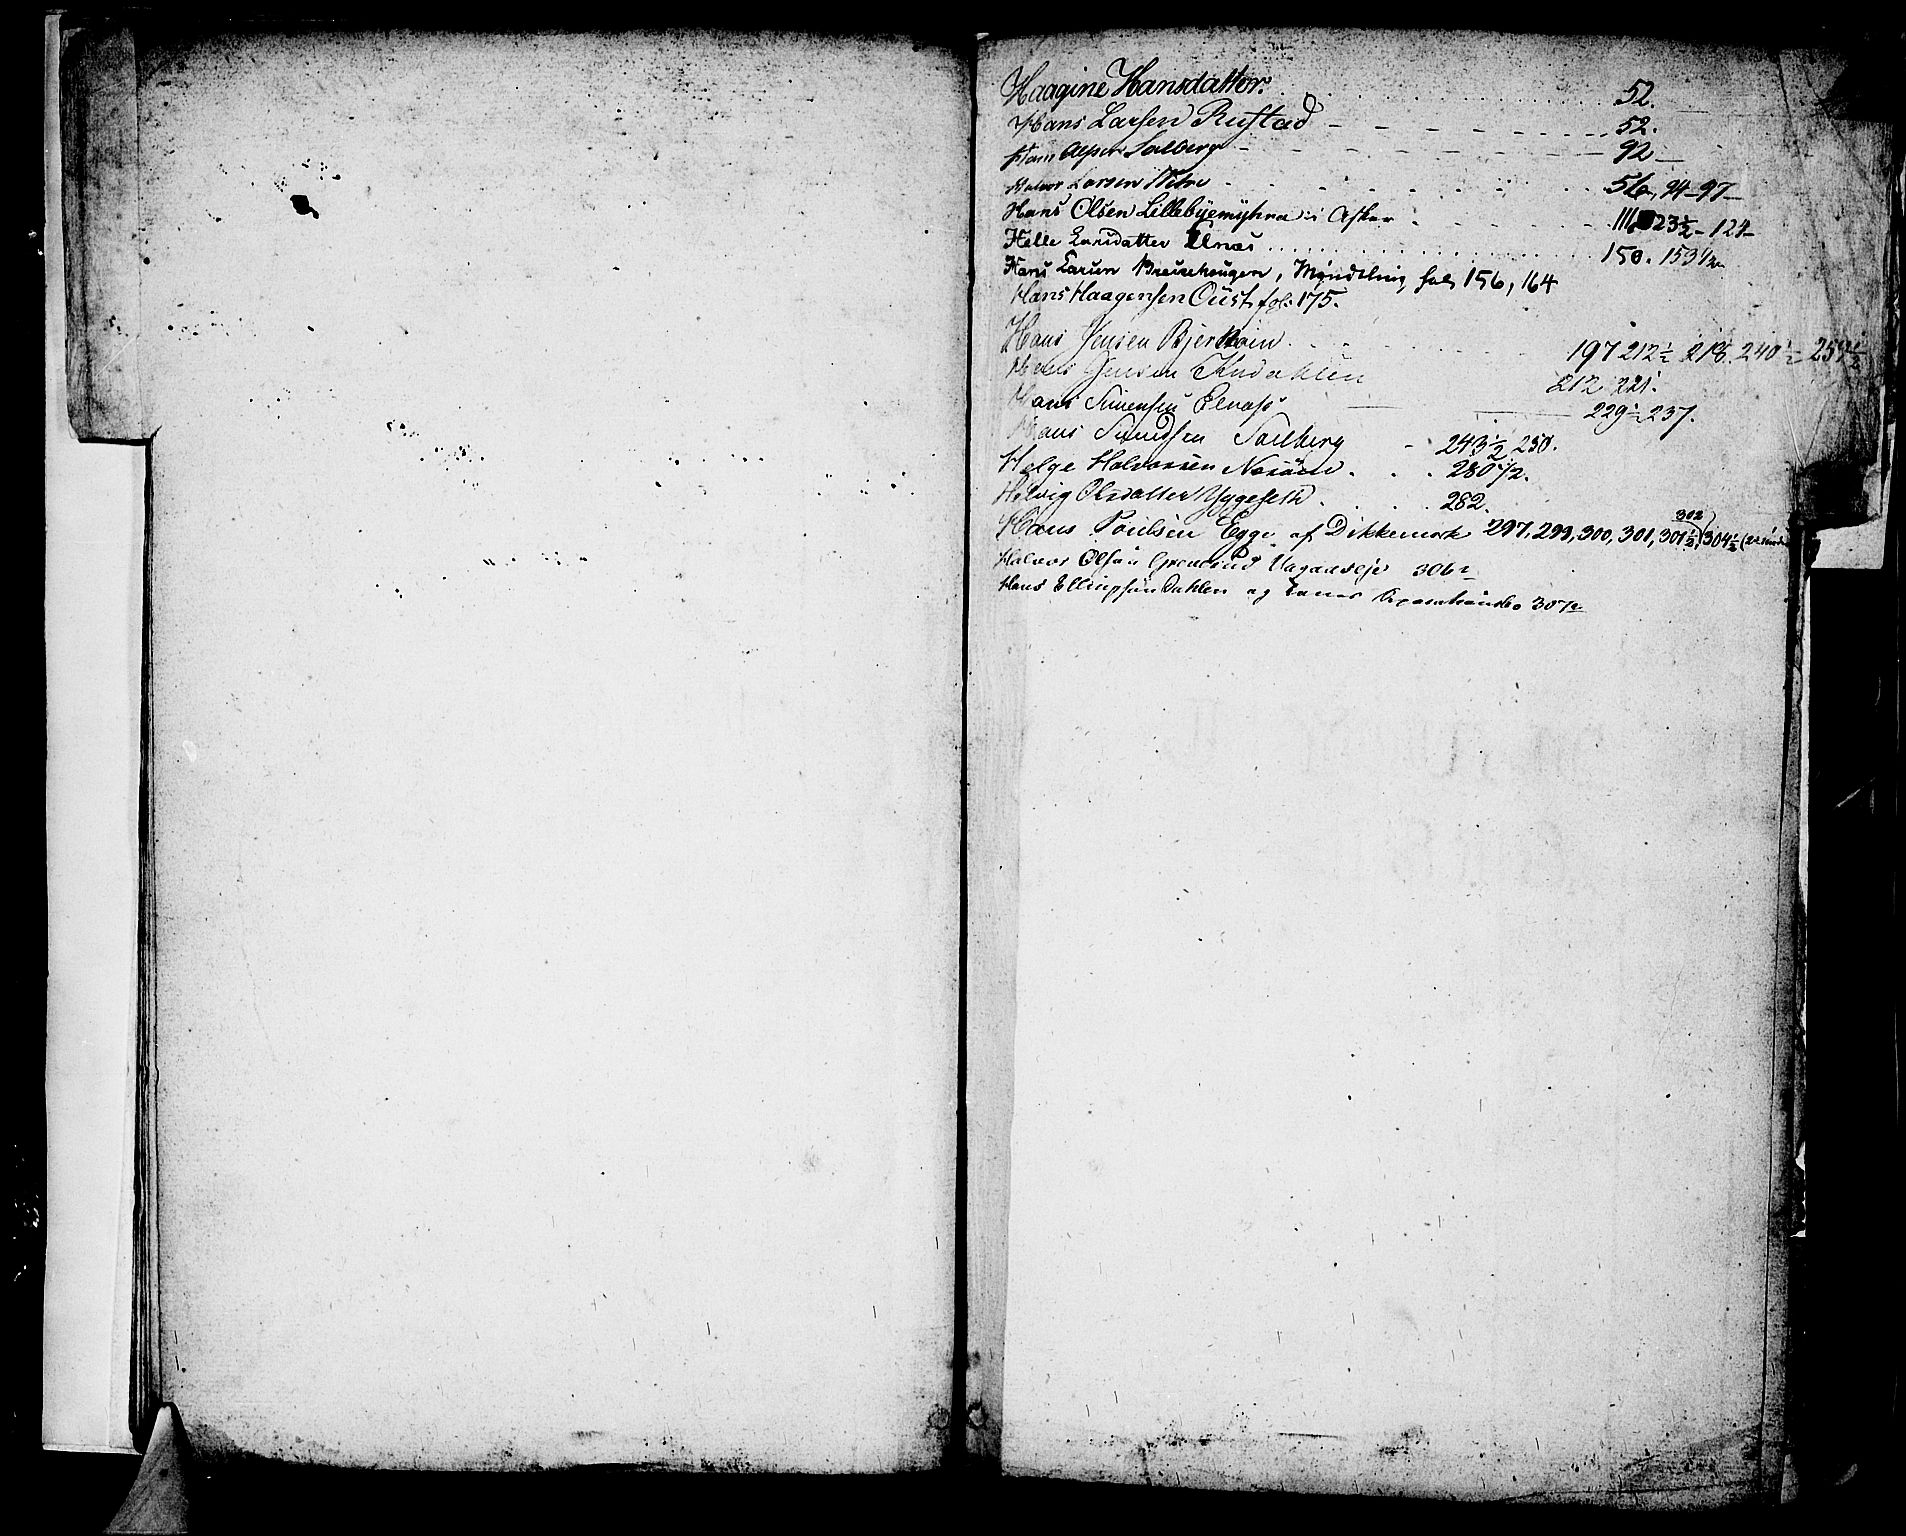 Haagine Hansdatter. . . . . . . . . . . 52.
Hans Larsen Rustad - - - - - - - 52.
Hans Alpers. Solberg - - - - - - 92 -
Halvor Larsen - - - - - - 56, 94-97-
Hans Olsen Lillebyemyhra i Asker . . . 116, 123½ - 124-
Helle Larsdatter Elnæs . . . . . . . . 150. 153½
Hans Larsen Breisehougen, Myndtling fol, 156, 164
Hans Haagensen Oust, fol. 175.
Hans Jensen Bjerkøin . . . . 197 212½ 218. 240½ 254½
Hans Jensen Kudahlen 212 221.
Hans Simensen Elnæss 229½ 237.
Hans Sundsen Solberg - 243½ 250.
Helge Halvorsen Nesøen . . . 280½.
Helvig Olsdatter Yggeseth . . . . 282.
302
Hans Poulsen Egge af Dikkemark 297, 299, 300, 301, 301½) 304½
Halvor Olsen Grønsund 306½
Hans Ellingsen Dahlen og 307½